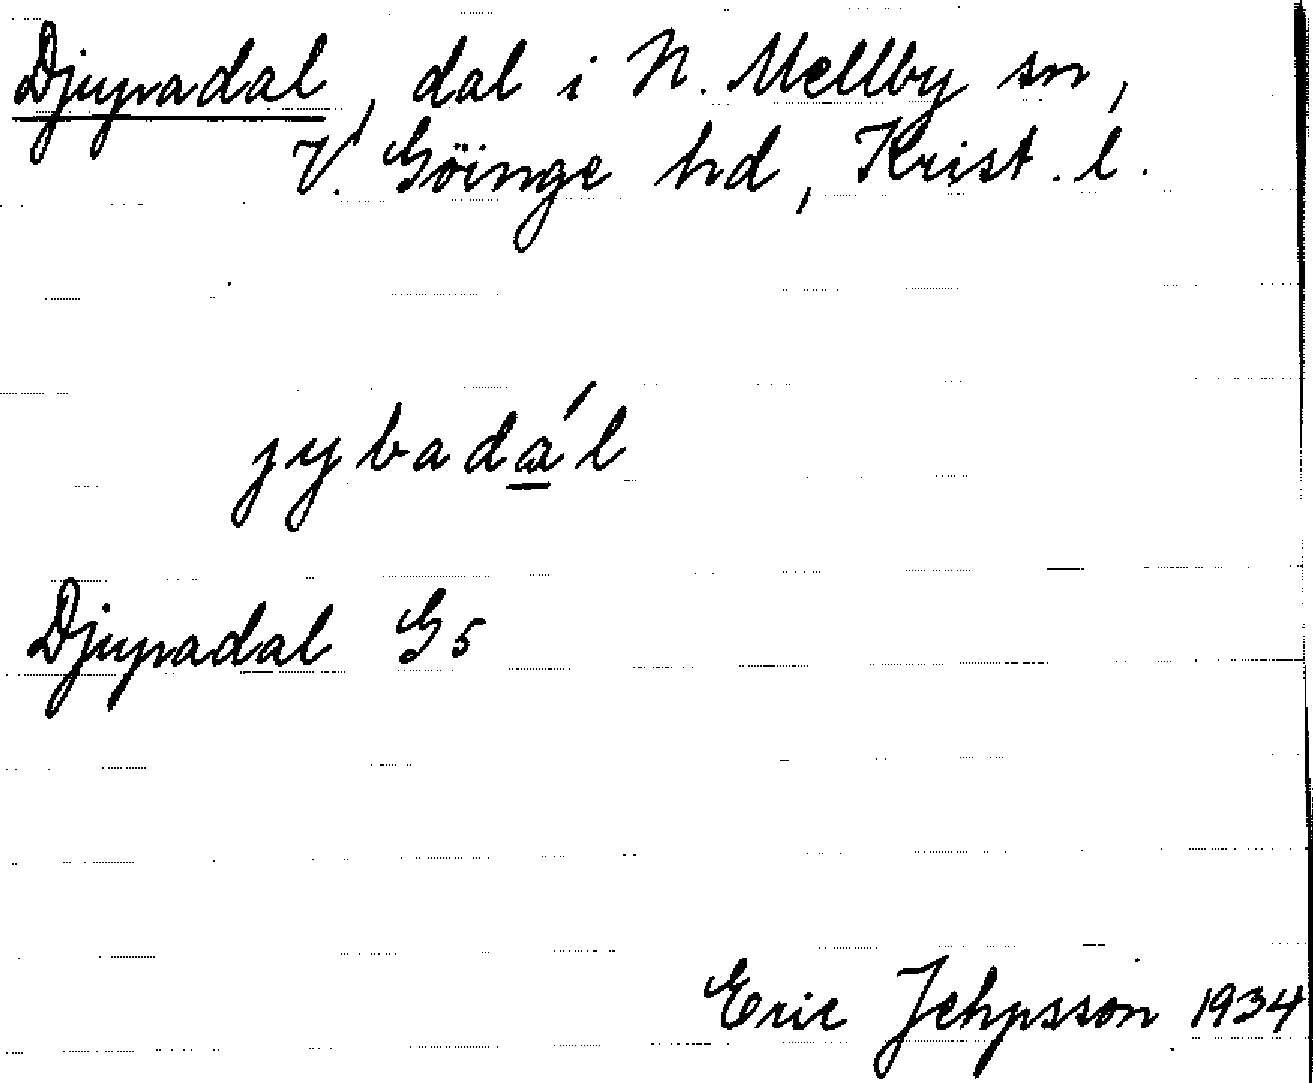 Djupadal, dal i N. Mellby sn,
V. Göinge hd, Krist. l.
jybadál
Djupadal G5
Eric Jehpsson 1934